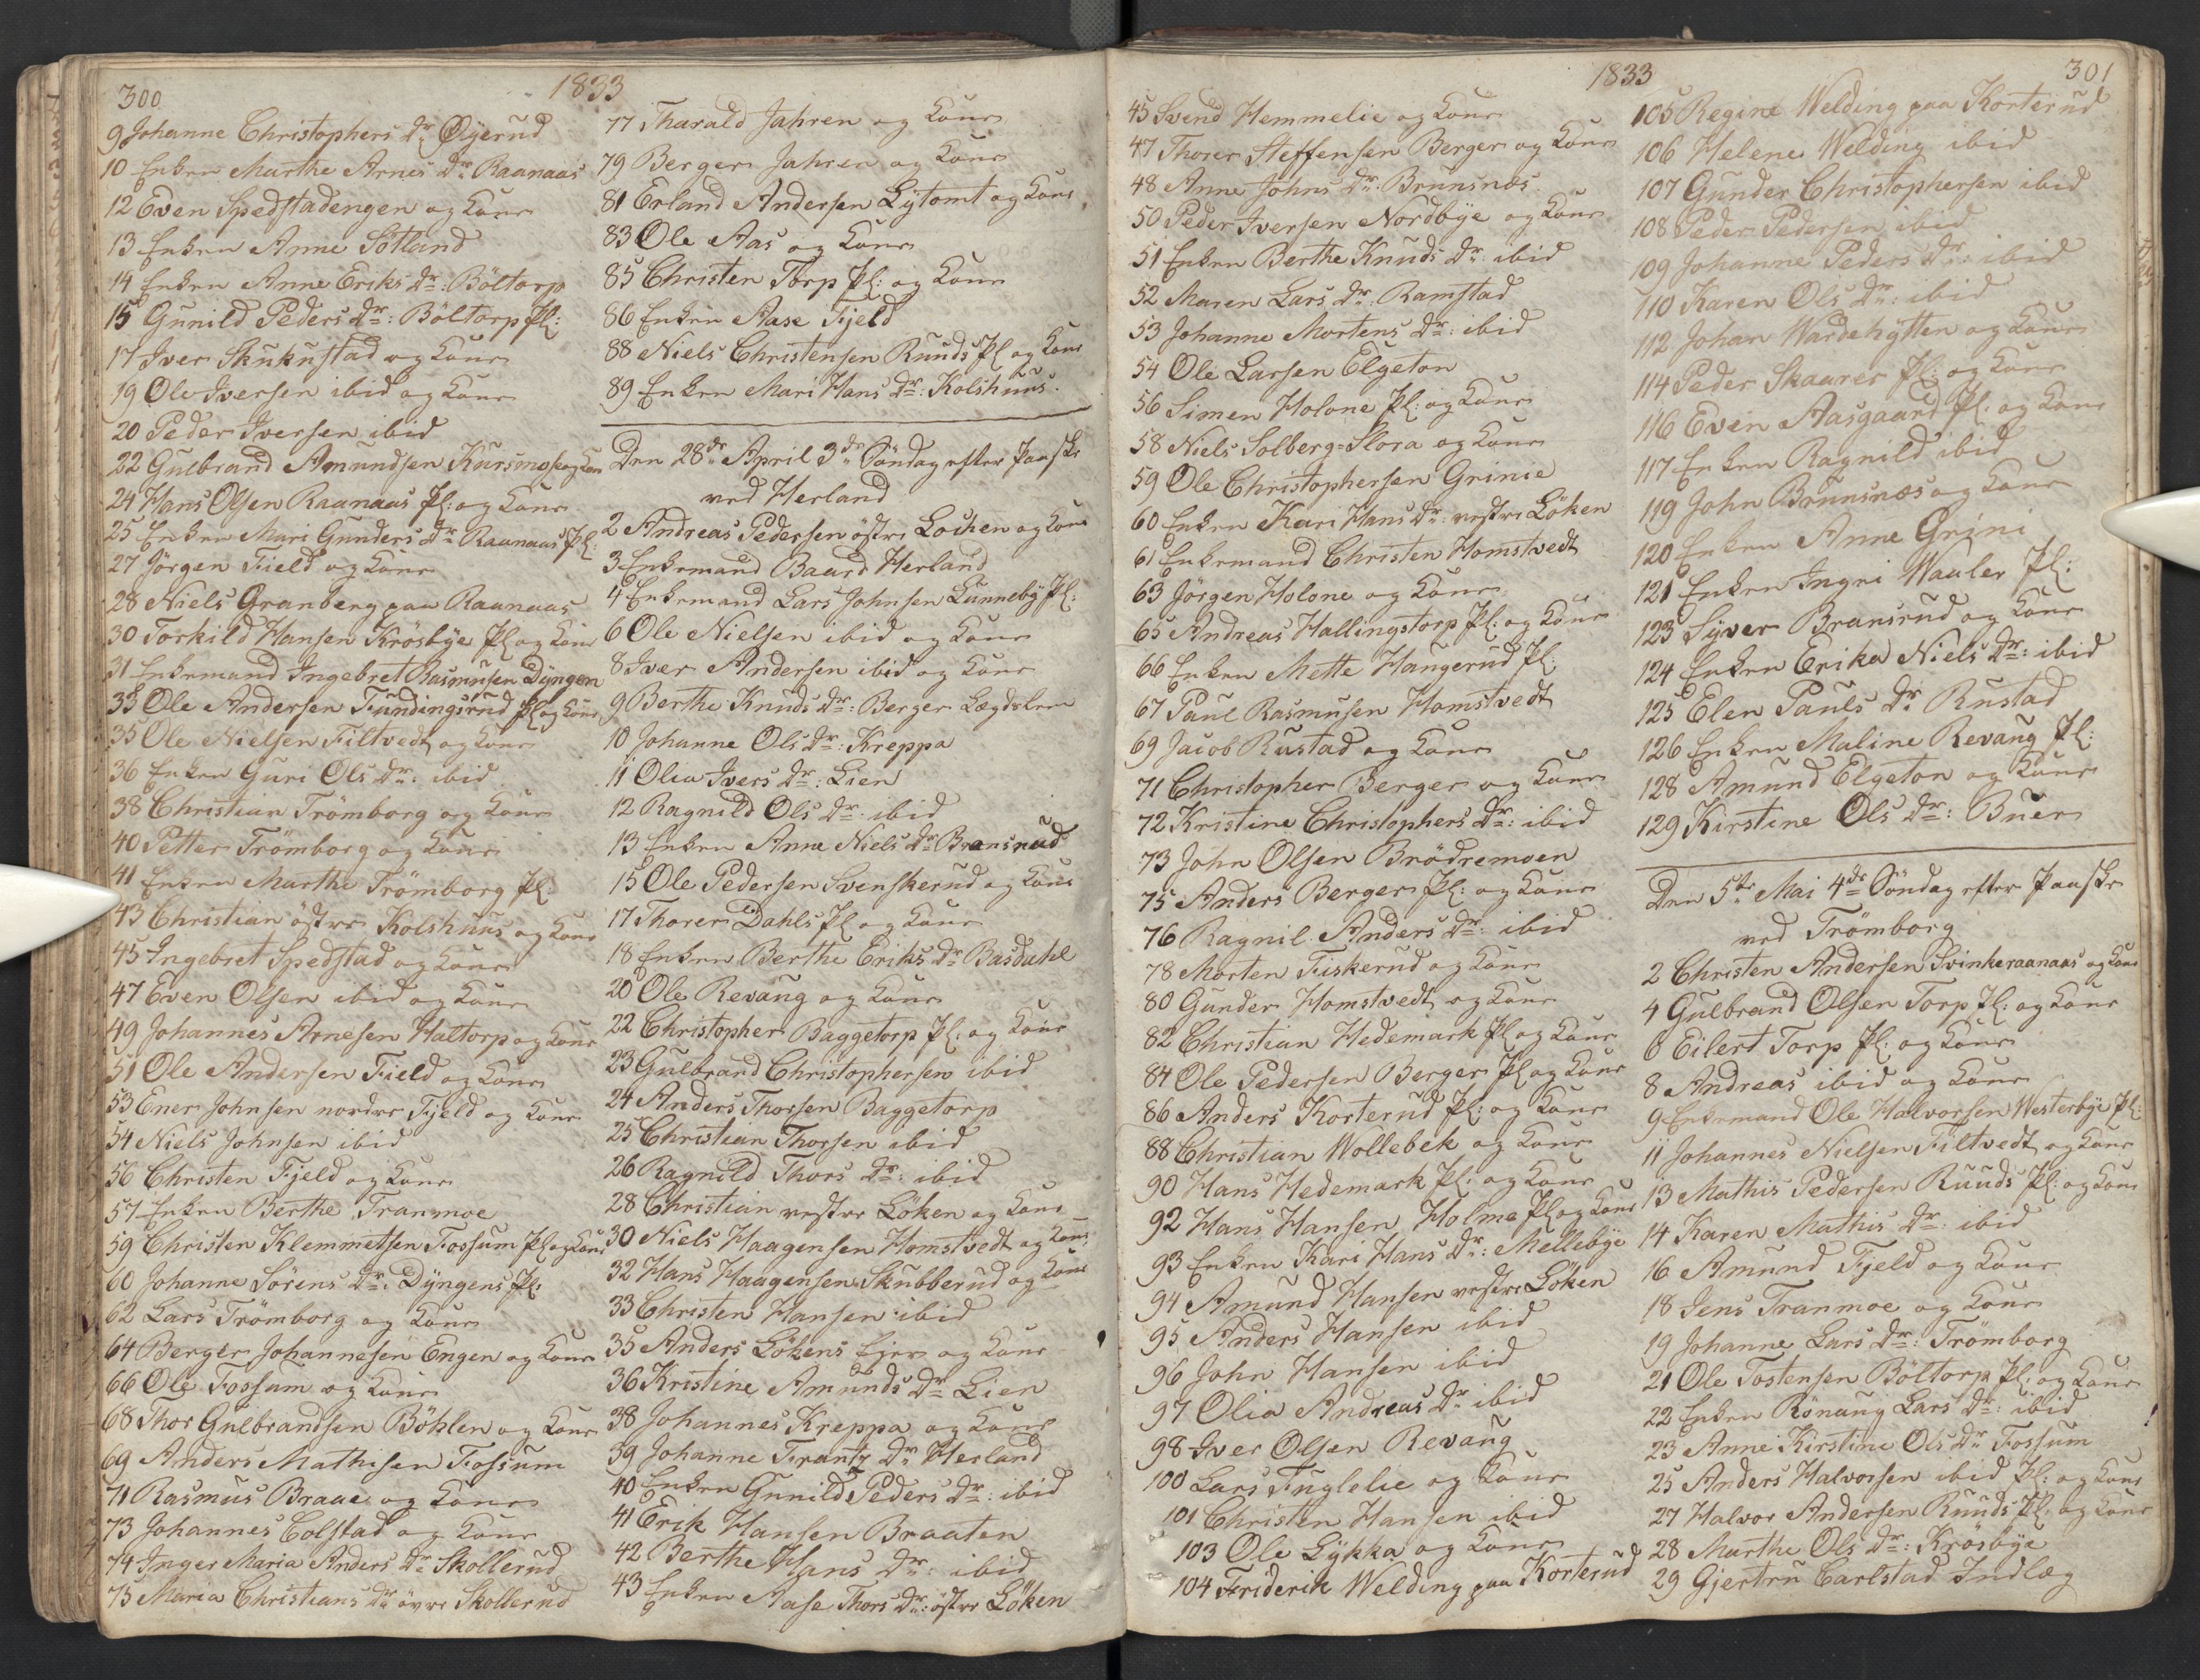 300
1833
9 Johanne Christophers Dr Øÿerud
10 Enken Marthe Arnes Dr Raanaas
12 Even Spedstadengen og Kone
13 Enken Anne Sötland
14 Enken Anne Eriks Dr: Böltorp
15 Gunild Peders Dr: Böltorp Pl:
17 Iver Skukustad og Kone
19 Ole Iversen ibid og Kone
20 Peder Iversen ibid
22 Gulbrand Amundsen Kursmose og Kone
24 Hans Olsen Raanaas Pl: og Kone
25 Enken Mari Gunders Dr Raanaas Pl:
27 Jörgen Field og Kone
28 Niels Granberg paa Raanaas
30 Torkild Hansen Krösbÿe Pl og Kone
31 Enkemand Ingebret Rasmusen Dÿngen
33 Ole Andersen Fundingsrud Pl og Kone
35 Ole Nielsen Filtvedt og Kone
36 Enken Guri Ols Dr: ibid
38 Christian Trömborg og Kone
40 Petter Trömborg og Kone
41 Enken Marthe Trömborg Pl:
43 Christian östre Kolshuus og Kone
45 Ingebret Spedstad og Kone
47 Even Olsen ibid og Kone
49 Johannes Arnesen Haltorp og Kone
51 Ole Andersen Field og Kone
53 Ener Johnsen nordre Fjeld og Kone
54 Niels Johnsen ibid
56 Christen Fjeld og Kone
57 Enken Berthe Tranmoe
59 Christen Klemmetsen Fossum Pl og Kone
60 Johanne Sörens Dr: Dÿngens Pl:
62 Lars Trömborg og Kone
64 Berger Johannesen Engen og Kone
66 Ole Fossum og Kone
68 Thor Gulbrandsen Böhlen og Kone
69 Anders Mathisen Fossum
71 Rasmus Braae og Kone
73 Johannes Colstad og Kone
74 Inger Maria Anders Dr Skollerud
75 Maria Christians Dr övre Skollerud
77 Tharald Jahren og Kone
79 Berger Jahren og Kone
81 Erland Andersen Lÿtomt og Kone
83 Ole Aas og Kone
85 Christen Torp Pl: og Kone
86 Enken Aase Fjeld
88 Niels Christensen Ruuds Pl og Kone
89 Enken Mari Hans Dr: Kolshuus.
Den 28de April 3de Söndag efter Paaske
ved Herland
2 Andreas Pedersen östre Lochen og Kone
3 Enkemand Baard Herland
4 Enkemand Lars Johnsen Lunnebÿ Pl:
6 Ole Nielsen ibid og Kone
8 Iver Andersen ibid og Kone
9 Berthe Knuds Dr: Berger Lægdslem
10 Johanne Ols Dr: Kreppa
11 Olia Ivers Dr: Lien
12 Ragnild Ols Dr: ibid
13 Enken Anne Niels Dr Bransrud
15 Ole Pedersen Svenskerud og Kone
17 Thorer Dahls Pl og Kone
18 Enken Berthe Eriks Dr Basdahl
20 Ole Revaug og Kone
22 Christopher Baggetorp Pl: og Kone
23 Gulbrand Christophersen ibid
24 Anders Thorsen Baggetorp
25 Christian Thorsen ibid
26 Ragnild Thors Dr: ibid
28 Christian vestre Löken og Kone
30 Niels Haagensen Homstvedt og Kone
32 Hans Haagensen Skubberud og Kone
33 Christen Hansen ibid
35 Anders Lökens Eier og Kone
36 Kristine Amunds Dr Lien
38 Johannes Kreppa og Kone
39 Johanne Frantz Dr Herland
40 Enken Gunild Peders Dr: ibid
41 Erik Hansen Braaten
42 Berthe Hans Dr: ibid
43 Enken Aase Thors Dr: östre Löken
1833
301
45 Svend Hemmelie og Kone
47 Thorer Steffensen Berger og Kone
48 Anne Johns Dr: Brunsnæs
50 Peder Iversen Nordbÿe og Kone
51 Enken Berthe Knuds Dr ibid
52 Maren Lars Dr: Ramstad
53 Johanne Mortens Dr: ibid
54 Ole Larsen Elgeton
56 Simen Holone Pl: og Kone
58 Niels Solberg=Slora og Kone
59 Ole Christophersen Grinie
60 Enken Kari Hans Dr: vestre Löken
61 Enkemand Christen Homstvedt
63 Jörgen Holone og Kone
65 Andreas Hallingstorp Pl: og Kone
66 Enken Mette Haugerud Pl:
67 Paul Rasmusen Homstvedt
69 Jacob Rustad og Kone
71 Christopher Berger og Kone
72 Kristine Christophers Dr: ibid
73 John Olsen Brödremoen
75 Anders Berger Pl: og Kone
76 Ragnil Anders Dr: ibid
78 Morten Fiskerud og Kone
80 Gunder Homstvedt og Kone
82 Christian Hedemark Pl og Kone
84 Ole Pedersen Berger Pl og Kone
86 Anders Korterud Pl: og Kone
88 Christian Wollebek og Kone
90 Hans Hedemark Pl: og Kone
92 Hans Hansen Holme Pl og Kone
93 Enken Kari Hans Dr: Mellebÿe
94 Amund Hansen vestre Löken
95 Anders Hansen ibid
96 John Hansen ibid
97 Olia Andreas Dr ibid
98 Iver Olsen Revaug
100 Lars Fuglelie og Kone
101 Christen Hansen ibid
103 Ole Lÿkka og Kone
104 Friderik Welding paa Korterud
105 Regine Welding paa Korterud
106 Helene Welding ibid
107 Gunder Christophersen ibid
108 Peder Pedersen ibid
109 Johanne Peders Dr: ibid
110 Karen Ols Dr: ibid
112 Johan Wardehÿtten og Kone
114 Peder Skaarer Pl: og Kone
116 Even Aasgaard Pl: og Kone
117 Enken Ragnild ibid
119 John Brunsnæs og Kone
120 Enken Anne Grini
121 Enken Ingri Waaler Pl:
123 Sÿver Bransrud og Kone
124 Enken Erika Niels Dr: ibid
125 Elen Pauls Dr Rustad
126 Enken Maline Revaug Pl:
128 Amund Elgeton og Kone
129 Kirstine Ols Dr: Buer
Den 5te Mai 4de Söndag efter Paaske
ved Trömborg
2 Christen Andersen Svinkeraanaas og Kone
4 Gulbrand Olsen Torp Pl: og Kone
6 Eilert Torp Pl: og Kone
8 Andreas ibid og Kone
9 Enkemand Ole Halvorsen Westerbÿe Pl:
11 Johannes Nielsen Filtvedt og Kone
13 Mathis Pedersen Ruuds Pl: og Kone
14 Karen Mathis Dr: ibid
16 Amund Fjeld og Kone
18 Jens Tranmoe og Kone
19 Johanne Lars Dr: Trömborg
21 Ole Tostensen Böltorp Pl: og Kone
22 Enken Rönaug Lars Dr: ibid
23 Anne Kirstine Ols Dr Fossum
25 Anders Halvorsen ibid Pl: og Kone
27 Halvor Andersen Ruuds Pl: og Kone
28 Marthe Ols Dr: Krösbÿe
29 Gjertru Carlstad Indlæg